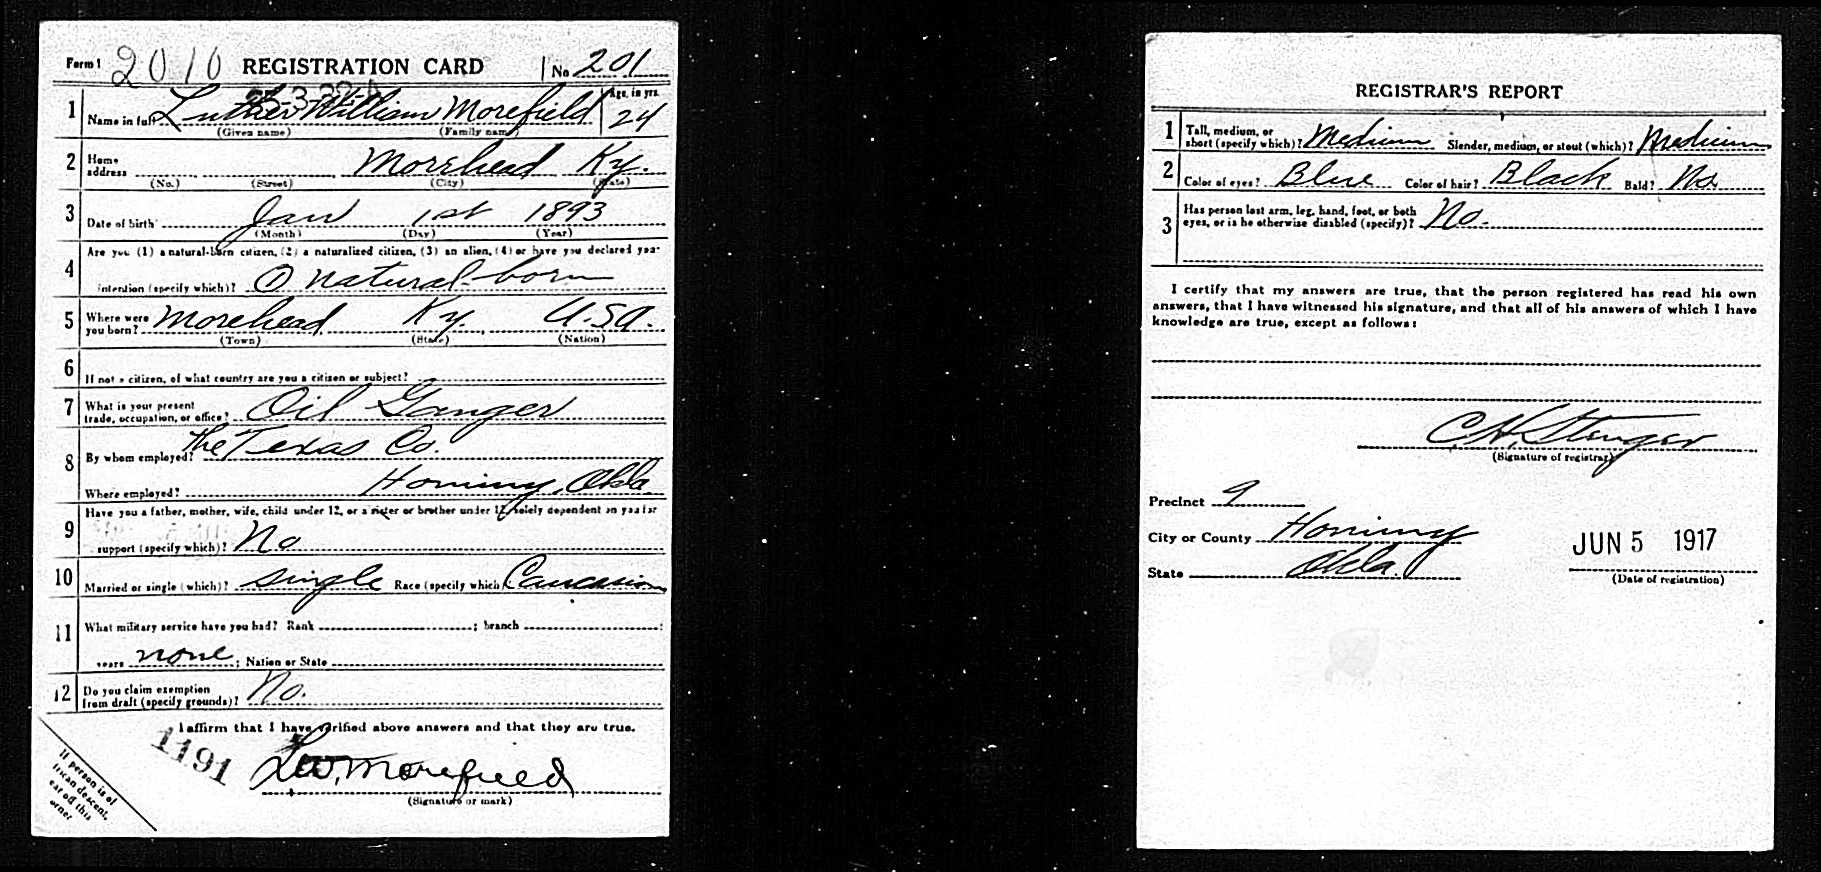 Form 1 2010 REGISTRATION CARD No 201
1 Name in full Luther William Morefield Age, in yrs. 24
(Given name) (Family name)
2 Home address Morehead Ky.
(No.) (Street) (City) (State)
3 Date of birth Jan 1st 1893
(Month) (Day) (Year)
4 Are you (1) a natural-born citizen, (2) a naturalized citizen, (3) an alien, (4) or have you declared your
intention (specify which)? ① natural-born
5 Where were you born? Morehead Ky. U.S.A.
(Town) (State) (Nation)
6 If not a citizen, of what country are you a citizen or subject?
7 What is your present
trade, occupation, or office? Oil Gauger
8 By whom employed? The Texas Co.
Where employed? Hominy, Okla.
9 Have you a father, mother, wife, child under 12, or a sister or brother under 12, solely dependent on you for
support (specify which)? No
10 Married or single (which)? Single Race (specify which) Caucasian
11 What military service have you had? Rank ; branch ;
years none ; Nation or State
12 Do you claim exemption
from draft (specify grounds)? No.
I affirm that I have verified above answers and that they are true.
1191
L.W. Morefield
(Signature or mark)
If person is of
African descent,
tear off this
corner
REGISTRAR'S REPORT
1 Tall, medium, or
short (specify which)? Medium Slender, medium, or stout (which)? Medium
2 Color of eyes? Blue Color of hair? Black Bald? No
3 Has person lost arm, leg, hand, foot, or both
eyes, or is he otherwise disabled (specify)? No.
I certify that my answers are true, that the person registered has read his own
answers, that I have witnessed his signature, and that all of his answers of which I have
knowledge are true, except as follows:
C.H. Stenger
(Signature of registrar)
Precinct 9
City or County Hominy
State Okla.
JUN 5 1917
(Date of registration)